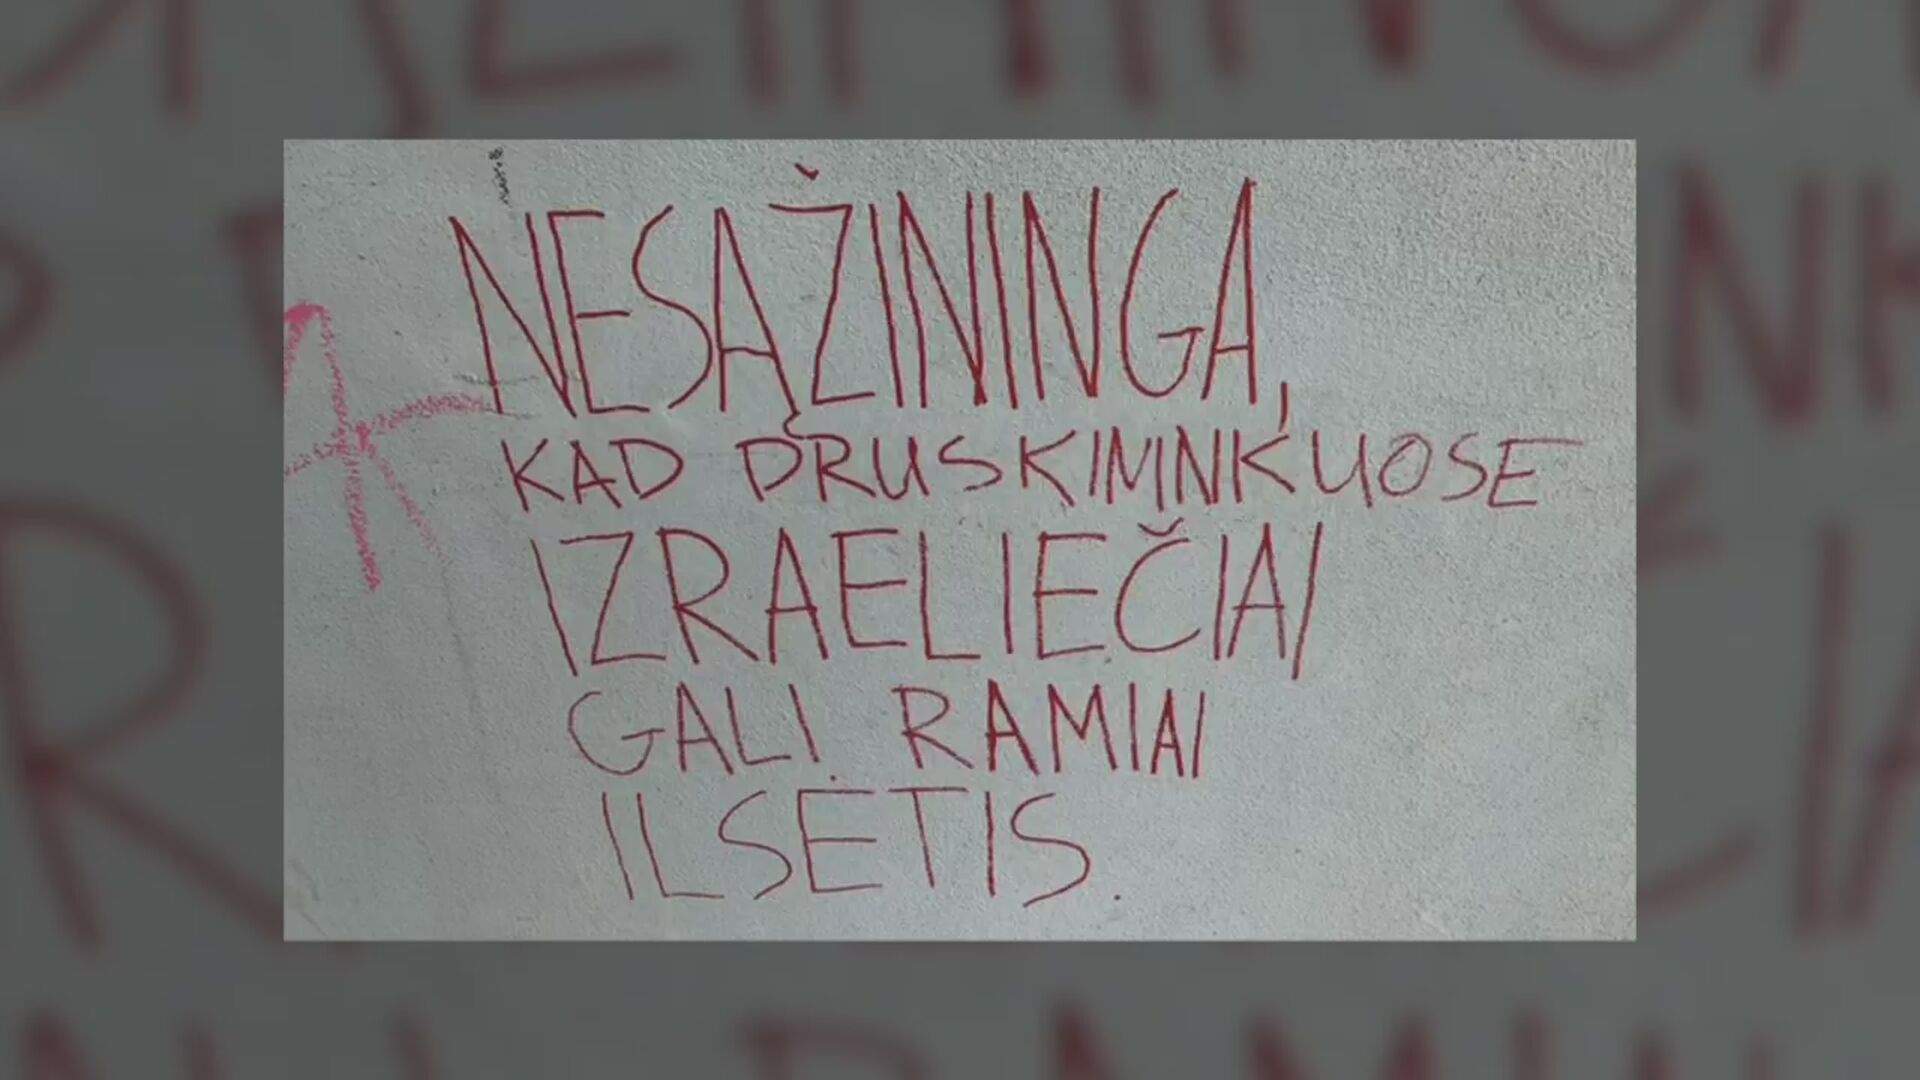 NESĄŽININGA,
KAD DRUSKIMNKUOSE
IZRAELIEČIAI
GALI RAMIAI
ILSĖTIS.